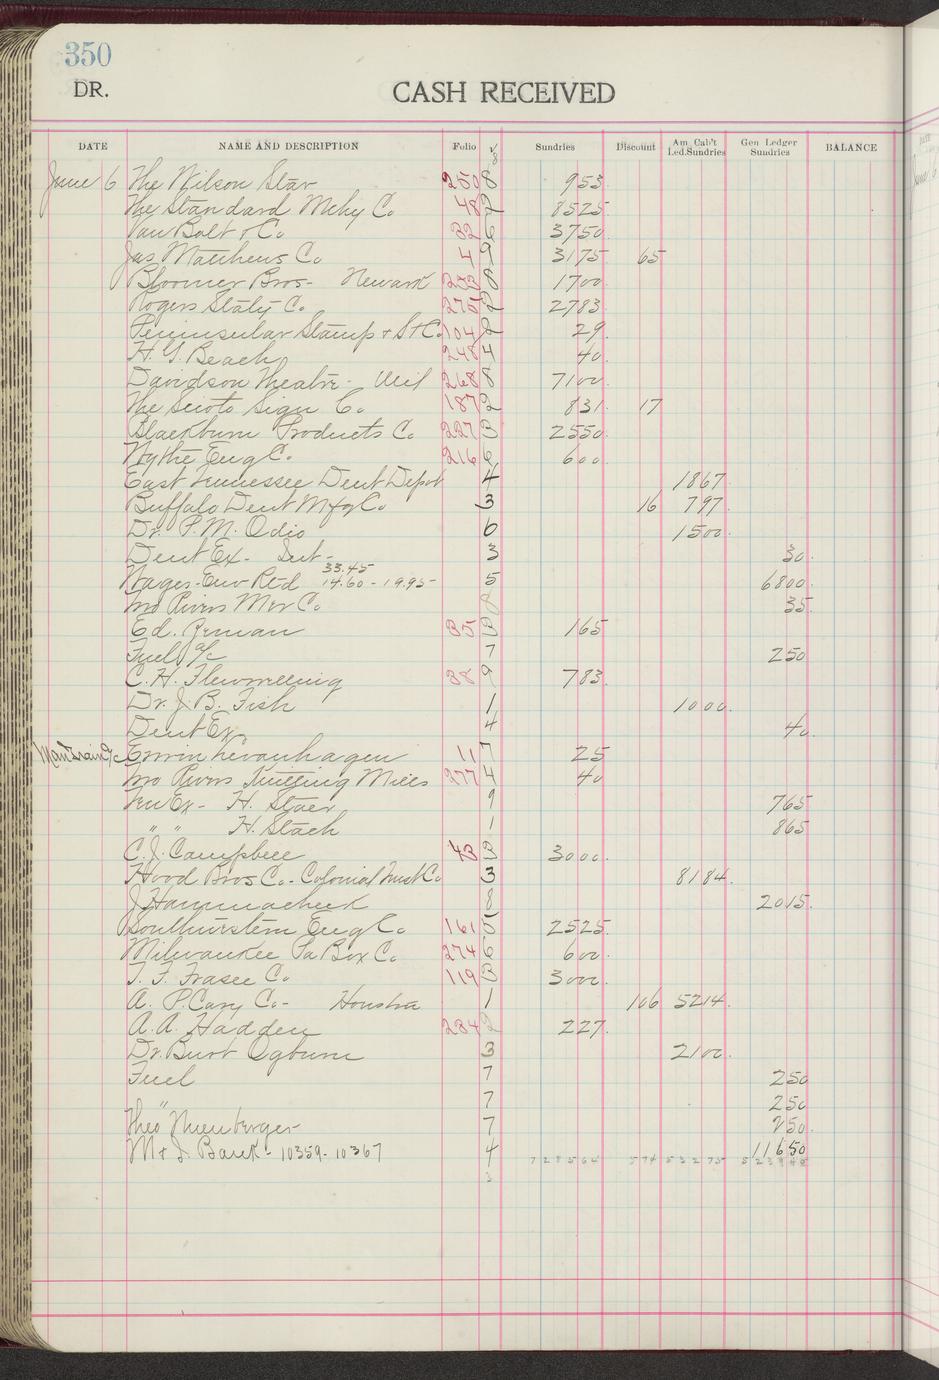 350
DR.
CASH RECEIVED
DATE NAME AND DESCRIPTION Folio √ Sundries Discount Am Cab't Led.Sundries Gen Ledger Sundries BALANCE
June 6 The Wilson Star 250 8 953
The Standard Mchy Co 48 2 8525
Van Bolt & Co 32 6 3750
Jas Matthews Co 4 9 3175 65
Bloomer Bros- Newark 253 8 1700
Rogers Stat'y Co. 270 2 2783
Peninsular Stamp & S+Co 104 8 29
H. G. Beach 248 4 40
Davidson Theatre- Mil 268 8 7100
The Scioto Sign Co. 187 2 831 17
Blackburn Products Co 227 3 2550
Wythe Eng Co. 216 6 600
East Tennessee Dent Depot 4 1867
Buffalo Dent Mfg Co 3 16 797
Dr. P. M. Odio 6 1500
Dent Ex- Int- 3 30
Wages-Env Ret'd 33.45 14.60 - 19.95- 5 6800
Two Rivers Mer Co 8 35
Ed. Zeman 35 3 165
Fuel a/c 7 250
C. H. Flewmeeing 38 9 783
Dr. J. B. Fish 1 1000
Dent Ex 4 40
Man Train a/c Erwin 11 7 25
Two Rivers Knitting Mills 277 4 40
Ex- H. Staer 9 765
" " H. Stach 1 865
C. J. Campbell 43 3 3000
Hood Bros Co- Colonial Co 3 8184
J Hammacheck 8 2015
Southwestern Eng Co 161 5 2525
Milwaukee Pa Box Co 274 6 600
T. F. Frasee Co 119 3 3000
A. P. Cary Co- Houston 1 106 5214
A. A. Hadden 284 2 227
Dr. Burt Ogburn 3 2100
Fuel 7 250
" 7 250
Theo Nuenberger 7 250
M & J Bank- 10359-10367 4 11650
728564 574 53275
3